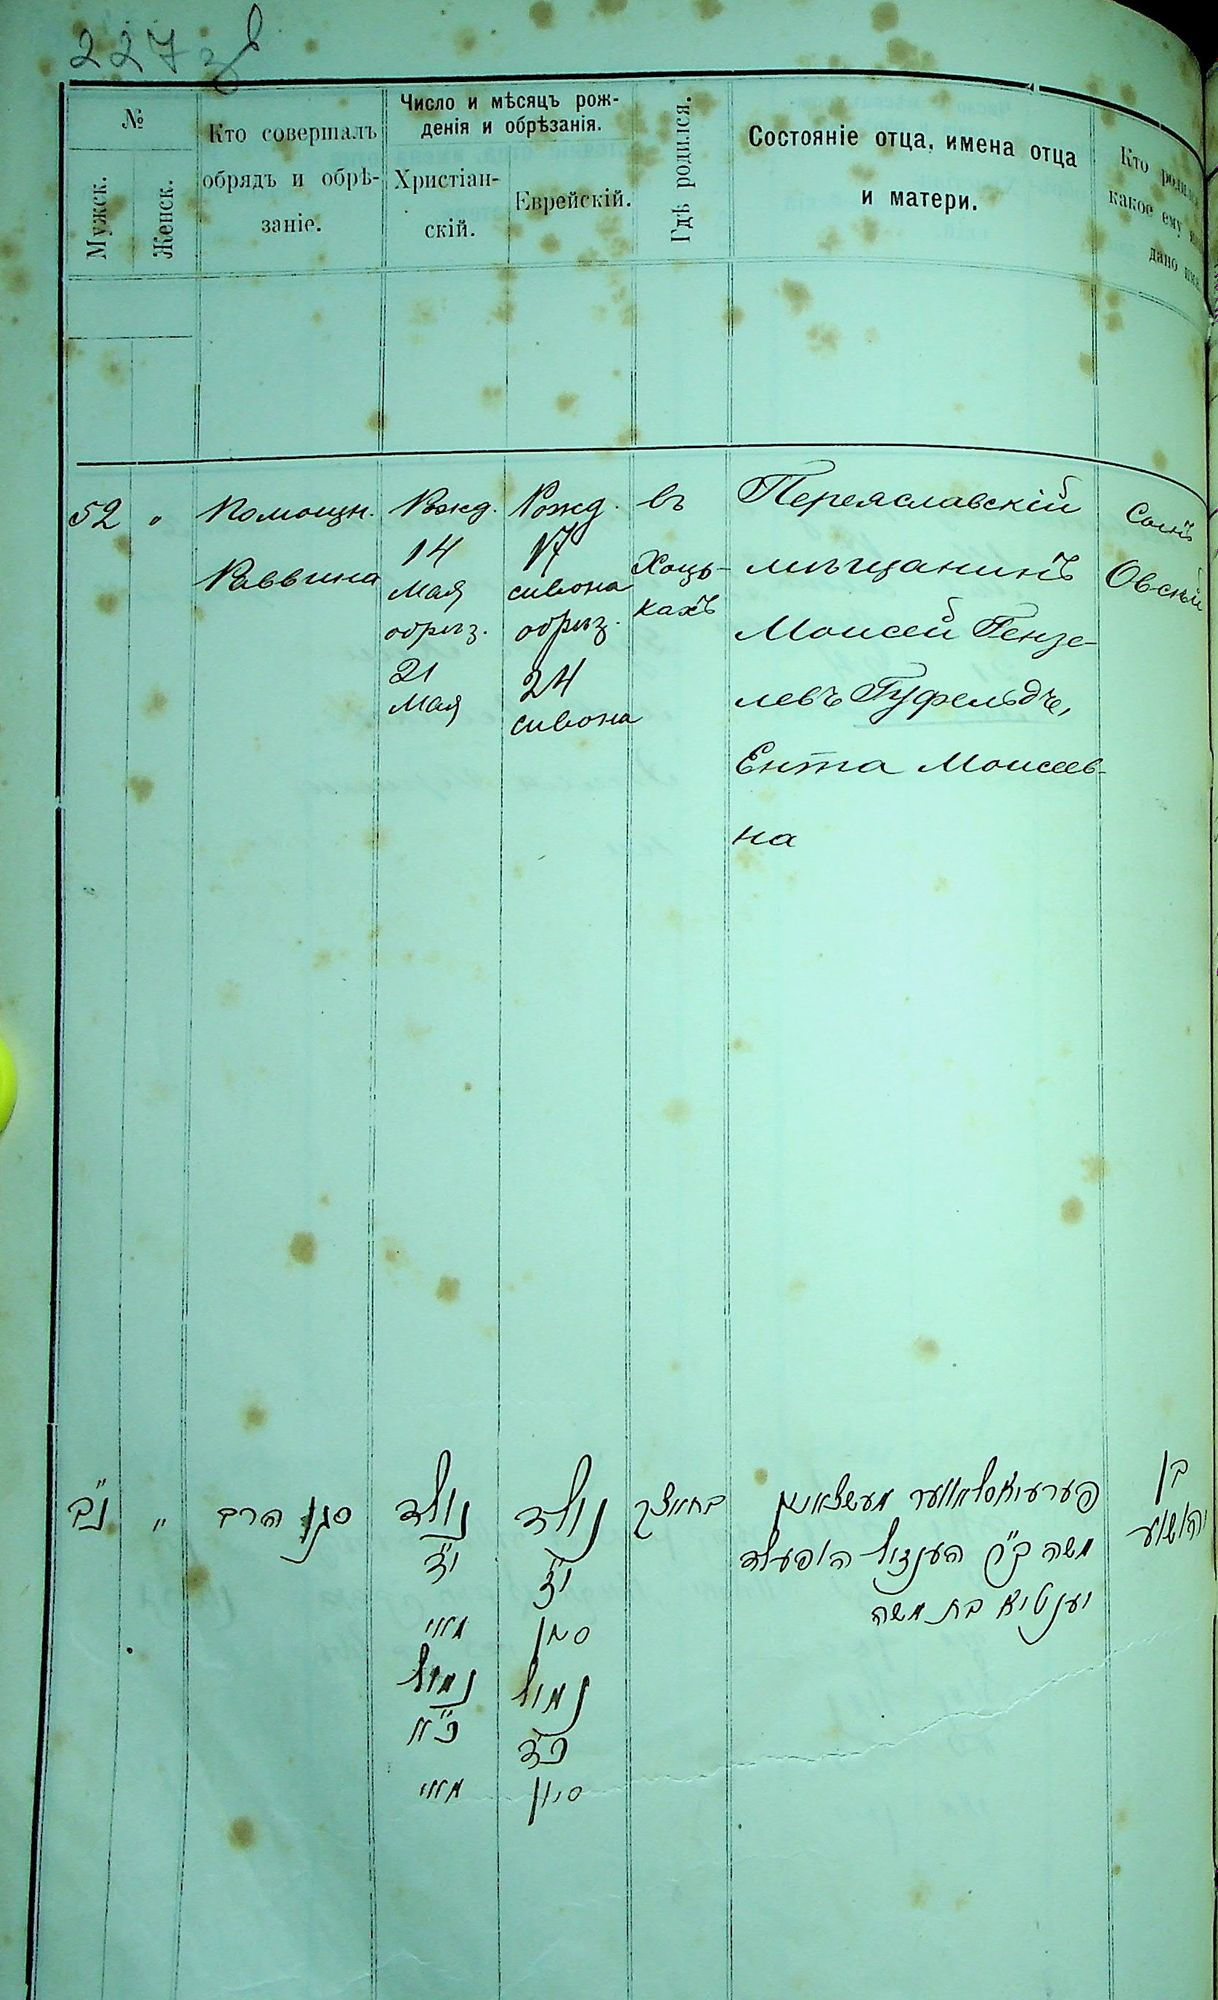 227 зв
№
Мужск.
Женск.
Кто совершалъ
обрядъ и обрѣ-
заніе.
Число и мѣсяцъ рож-
денія и обрѣзанія.
Христіан-
скій.
Еврейскій.
Гдѣ родился.
Состояніе отца, имена отца
и матери.
Кто
какое ему
дано
52
"
Помощн.
Раввина
Рожд.
14
мая
обрѣз.
21
мая
Рожд.
17
сивона
обрѣз.
24
сивона
въ
Хоць-
кахъ
Переяславскій
мѣщанинъ
Моисей Гензе-
левъ Гуфельдъ,
Ента Моисеев-
на
Сынъ
Овсѣй
נ"ב
"
סגן הרב
נולד
י"ד
מאיי
נמול
כ"א
מאיי
נולד
י"ז
סיון
נמול
כ"ד
סיון
מעשצאנין
משה ב"ר הענזיל הופעלד
יענטא בת משה
בן
יהושע